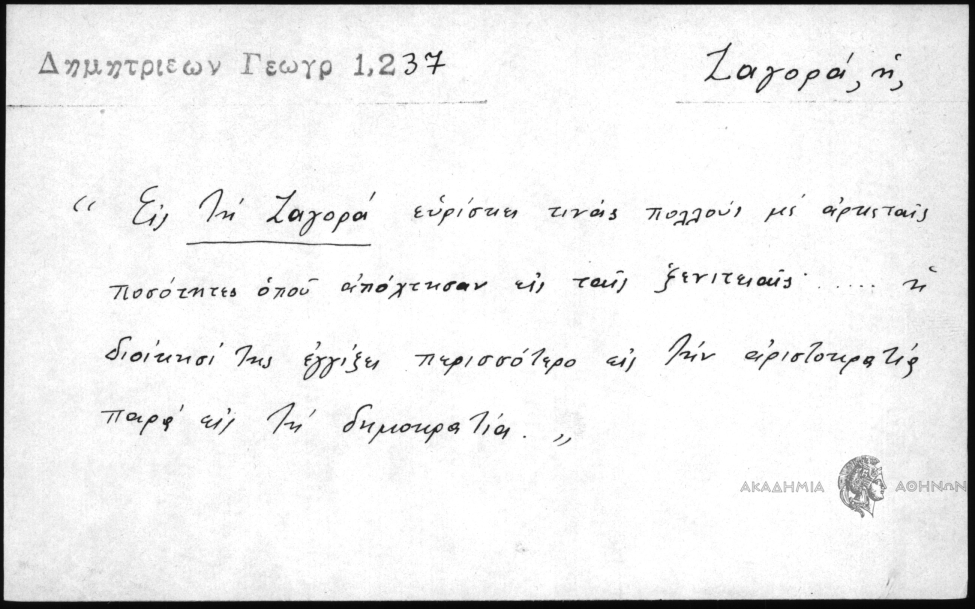 Δημητριεων Γεωγρ 1,237
Ζαγορά, ἡ,
“ Εἰς τὴ Ζαγορά εὑρίσκει τινάς πολλούς μέ ἀρκεταῖς
ποσότητες ὁποῦ ἀπόχτησαν εἰς ταῖς ξενιτειαῖς ..... ἡ
διοίκησί της ἐγγίζει περισσότερο εἰς τήν ἀριστοκρατία
παρά εἰς τή δημοκρατία. „
ΑΚΑΔΗΜΙΑ ΑΘΗΝΩΝ